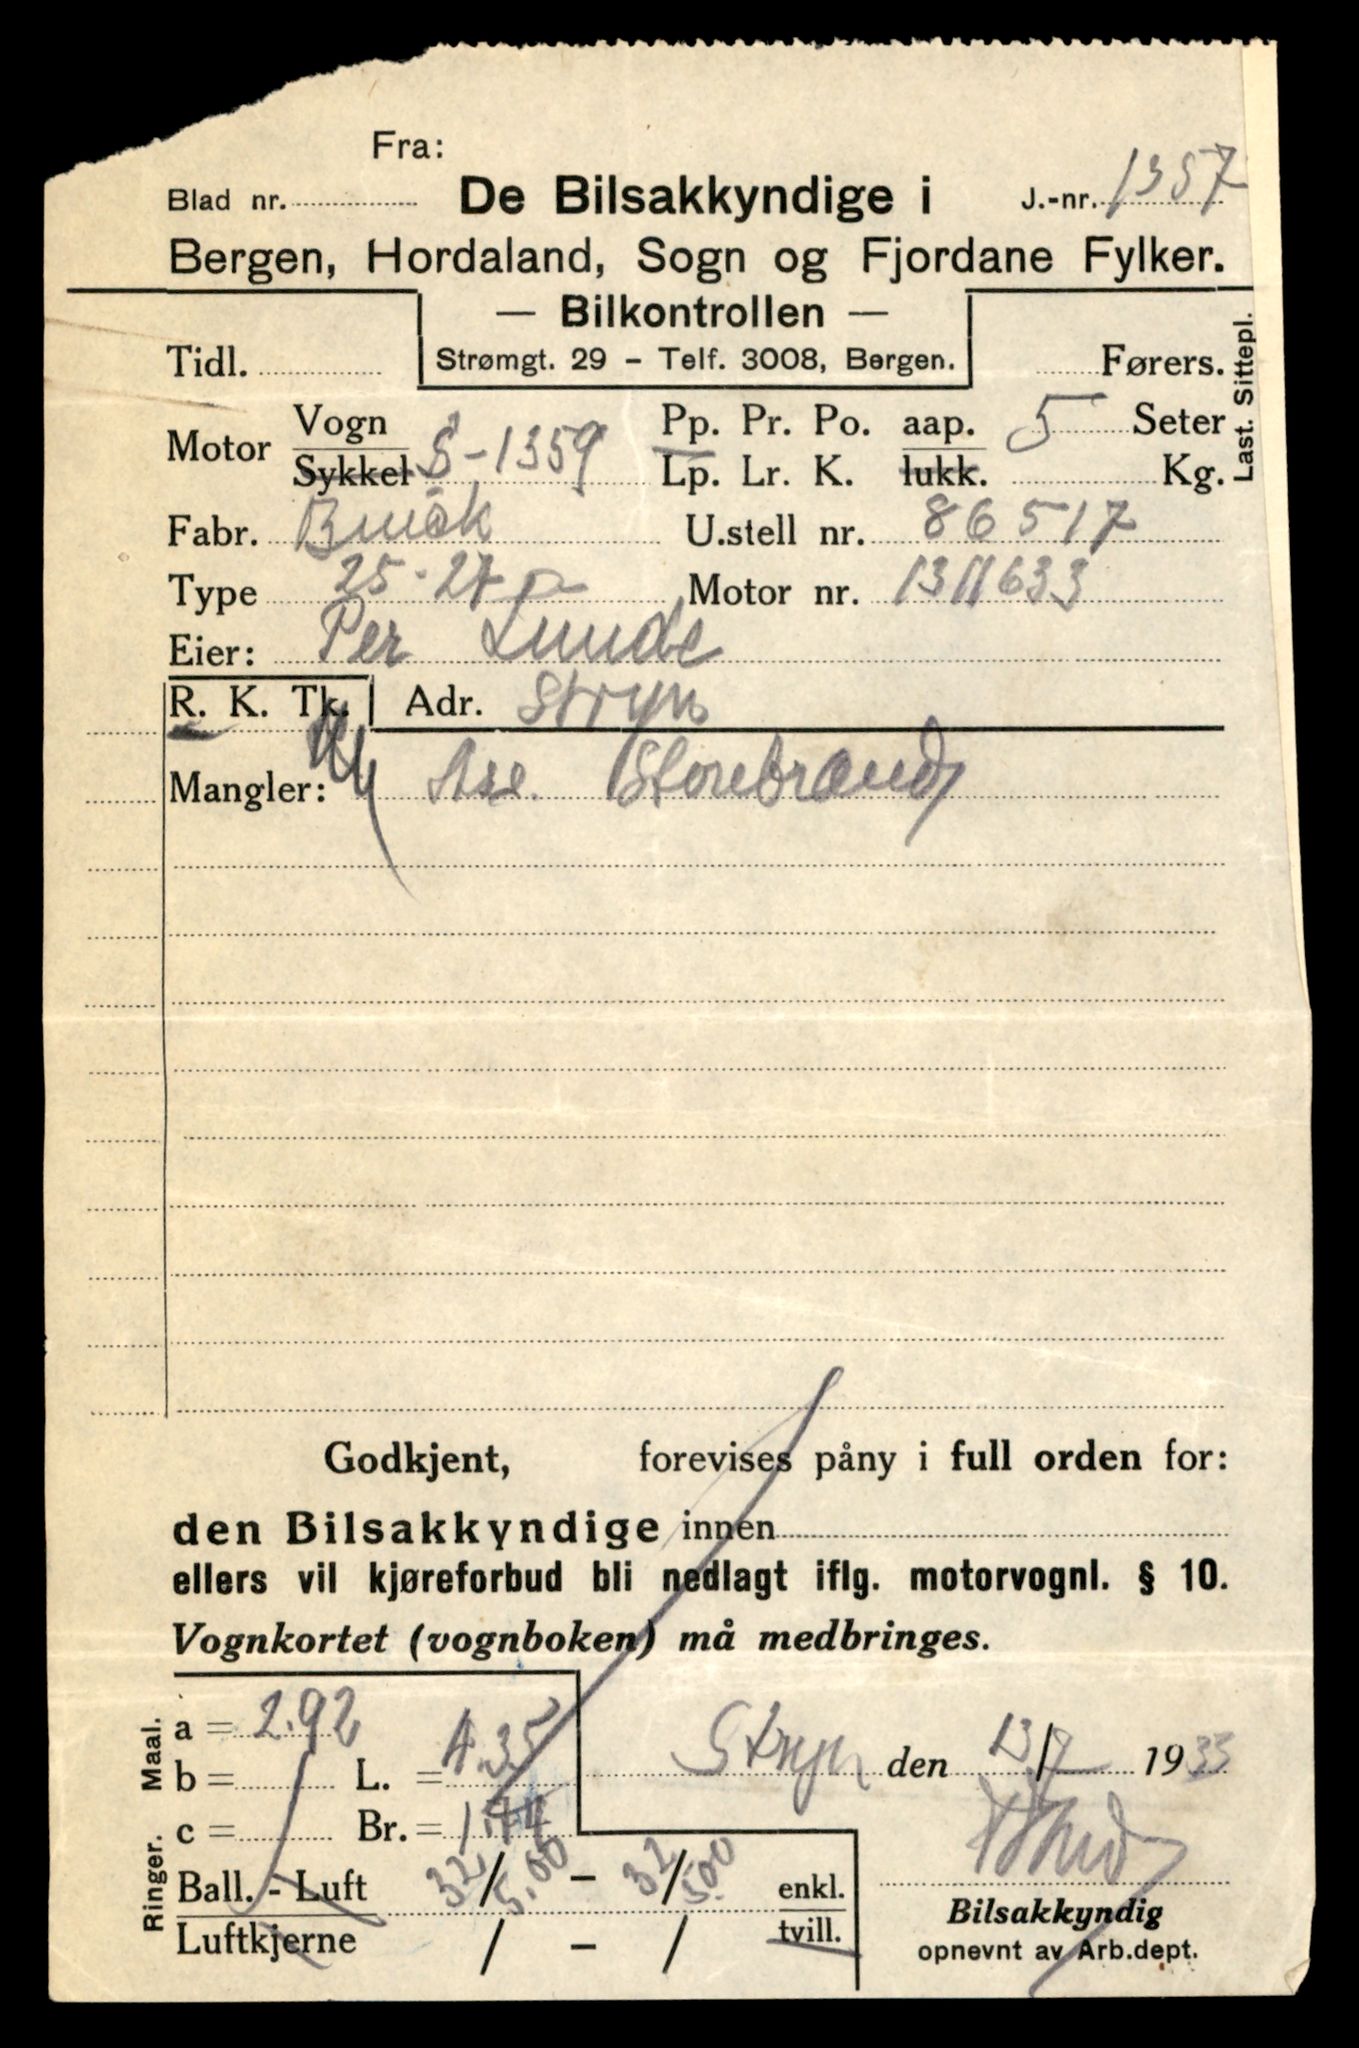 Fra:
Blad nr. De Bilsakkyndige i J.-nr. 1357
Bergen, Hordaland, Sogn og Fjordane Fylker.
— Bilkontrollen —
Tidl. Strømgt. 29 – Telf. 3008, Bergen. Førers.
Last. Sittepl.
Vogn Pp. Pr. Po. aap. 5 Seter
Motor S-1359
Sykkel Lp. Lr. K. lukk. Kg.
Fabr. Buick U.stell nr. 86517
Type 25-27 Motor nr. 1311633
Eier: Per Lunde
R. K. Tk. Adr. Stryn
Mangler: Ase. Storebrand
Godkjent, forevises påny i full orden for:
den Bilsakkyndige innen
ellers vil kjøreforbud bli nedlagt iflg. motorvognl. § 10.
Vognkortet (vognboken) må medbringes.
Maal.
a = 2.92
b = L. = 4.35
Stryn den 13/7 1933
c = Br. = 1.74
Ringer.
Ball. - Luft 32/5.00 - 32/5.00 enkl.
Luftkjerne / - / tvill.
Bilsakkyndig
opnevnt av Arb.dept.